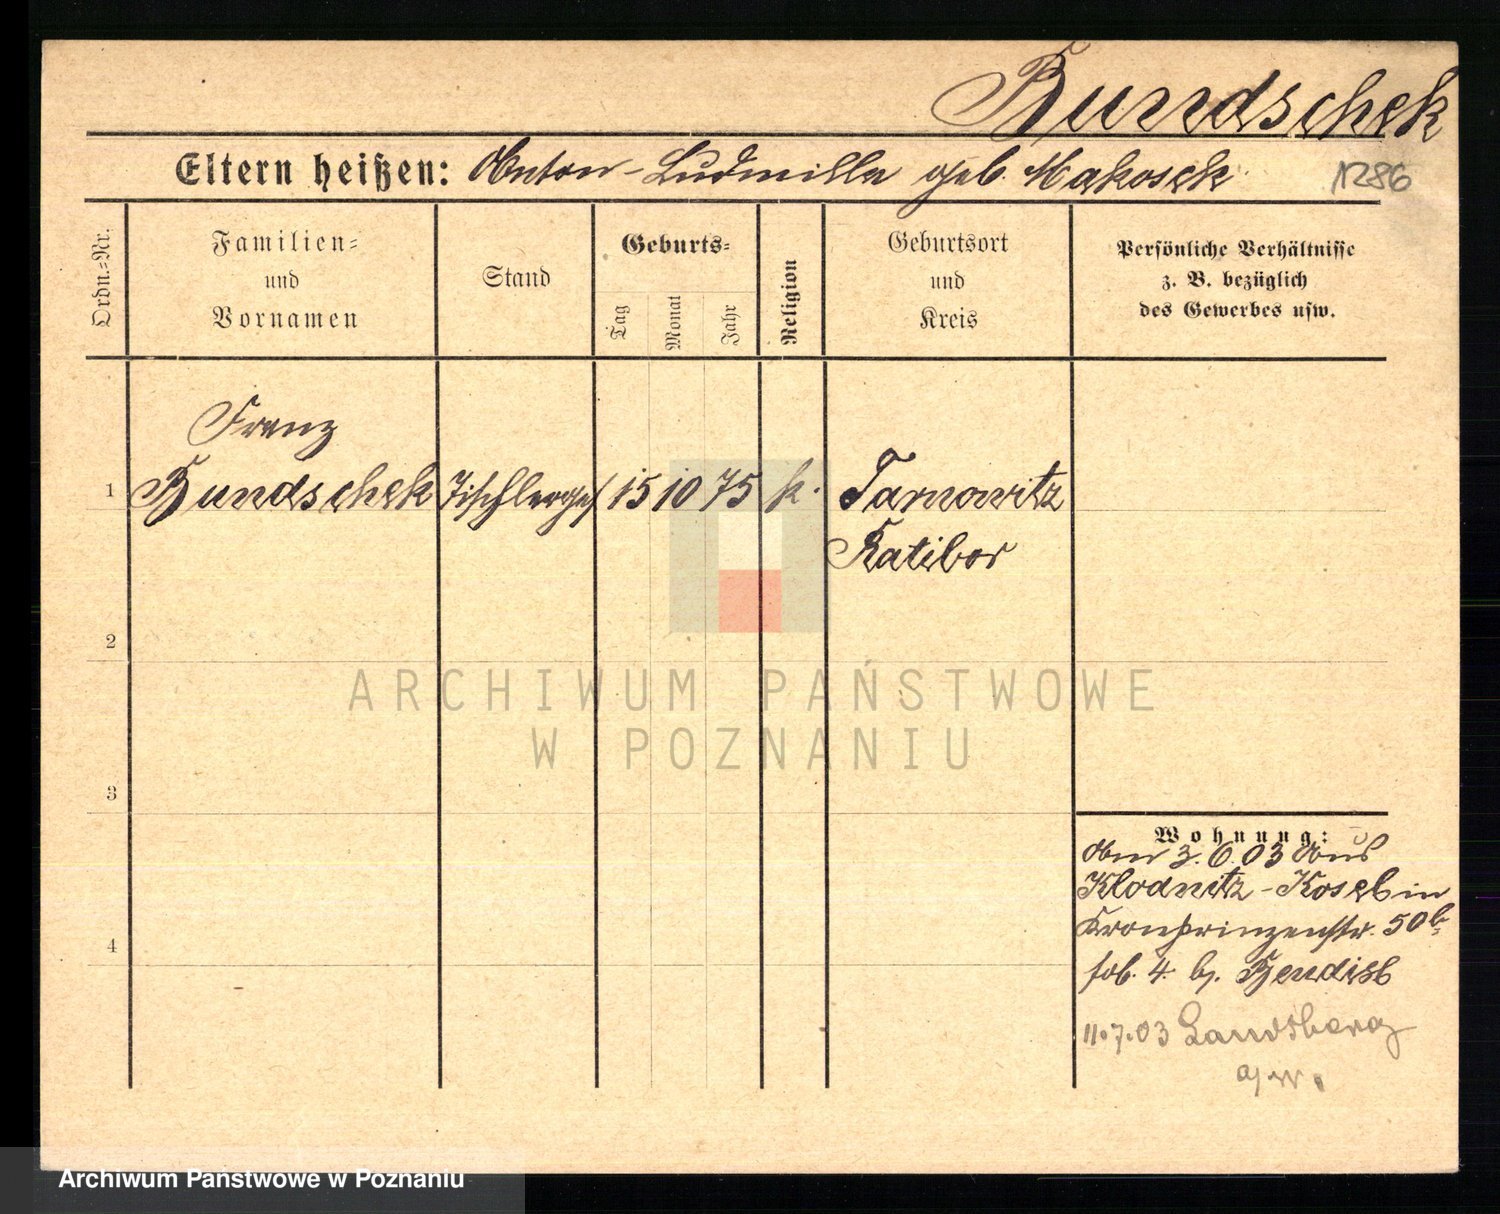 Bundschek
Eltern heißen: Anton - Ludmilla geb. Makosek
1286
Ordn.-Nr.
Familien-
und
Vornamen
Stand
Geburts-
Tag
Monat
Jahr
Religion
Geburtsort
und
Kreis
Persönliche Verhältnisse
z. B. bezüglich
des Gewerbes usw.
Franz
1 Bundschek Tischlerges 15 10 75 k. Tarnowitz
Ratibor
2
3
4
Wohnung:
Am 3.6.03 aus
Klodnitz - Kosel in
Kronprinzenstr. 50b
4. b.
11.7.03 Landsberg
a/W.
ARCHIWUM PAŃSTWOWE
W POZNANIU
Archiwum Państwowe w Poznaniu